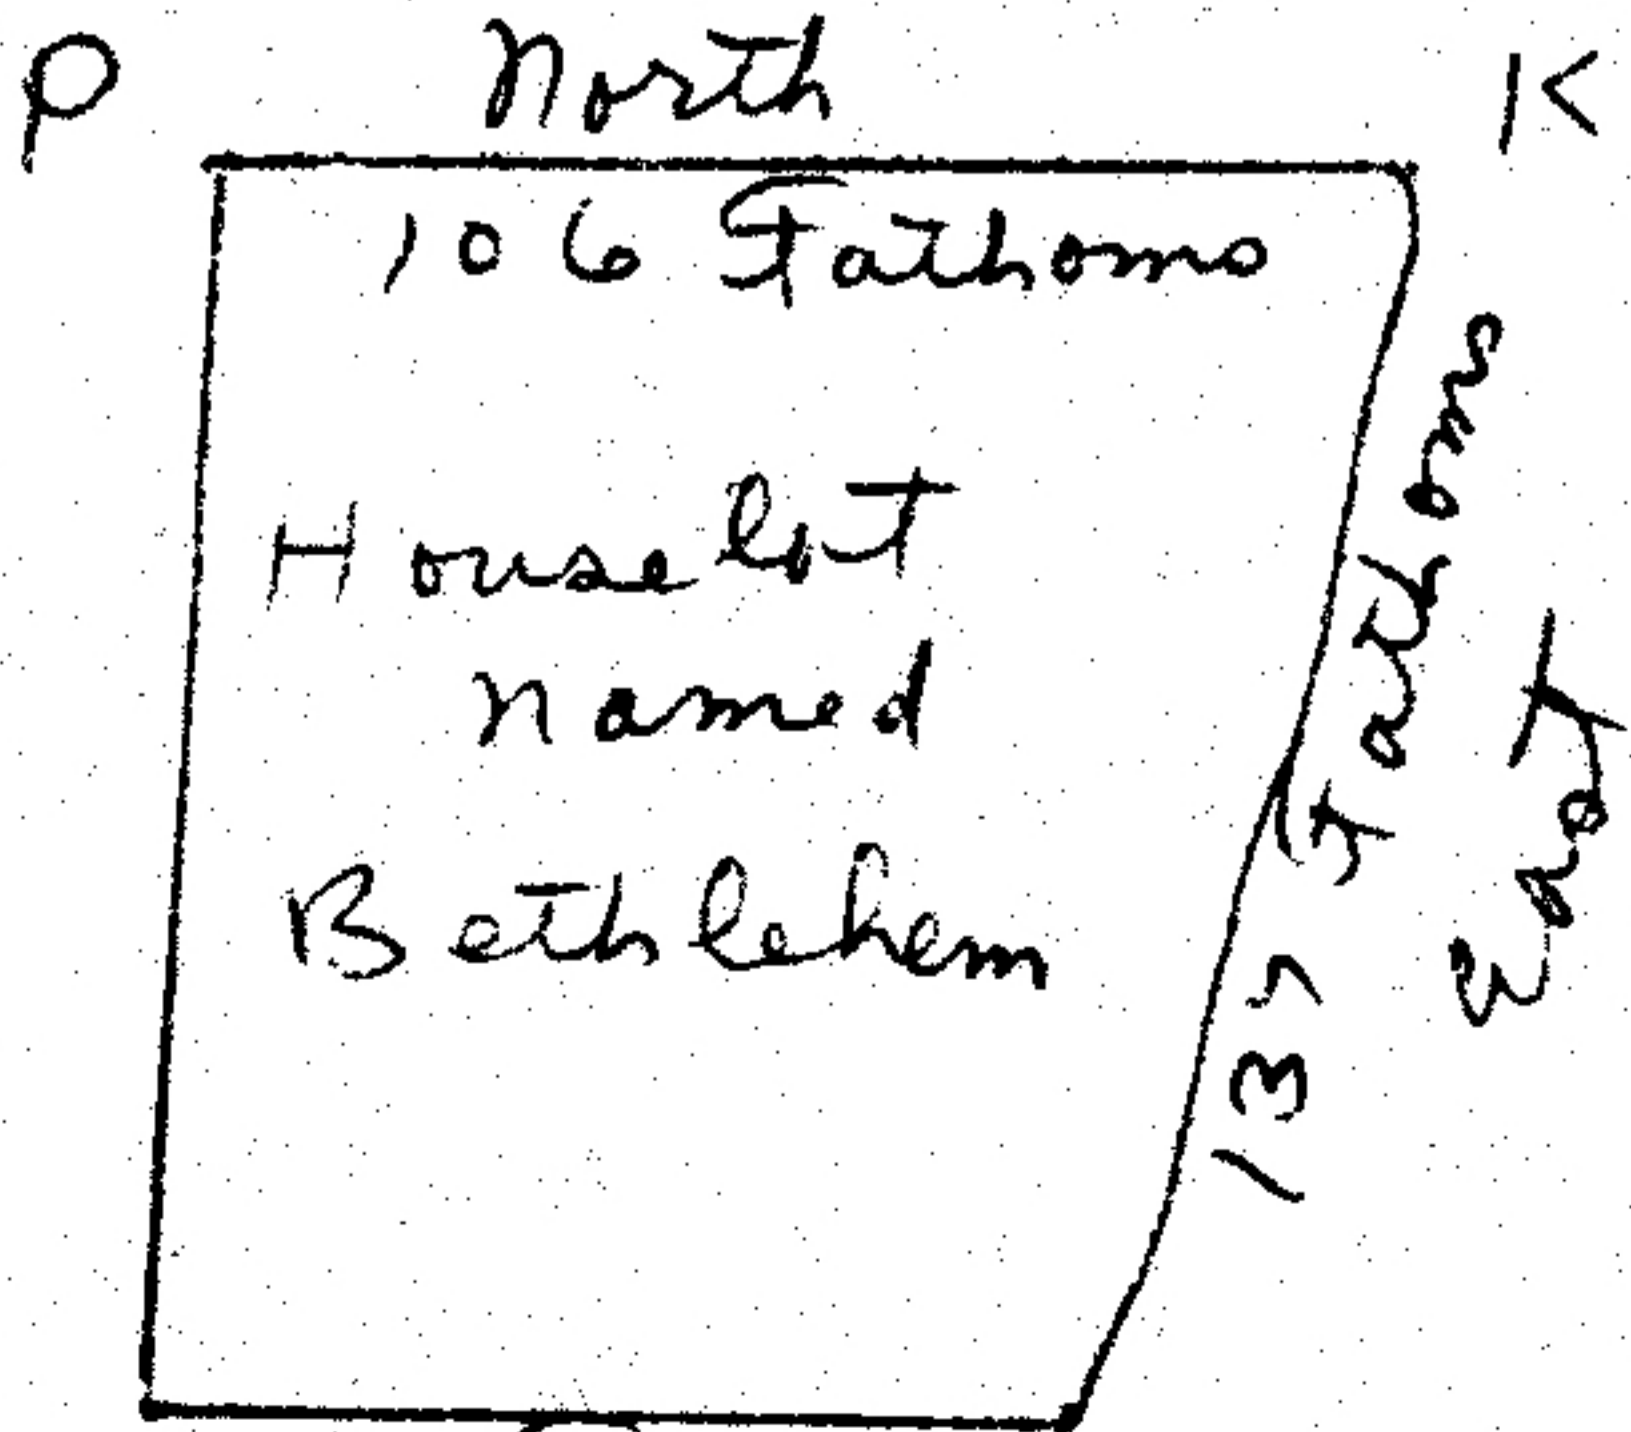 P North K
106 Fathoms
House lot
named
Bethlehem
Fathoms
East